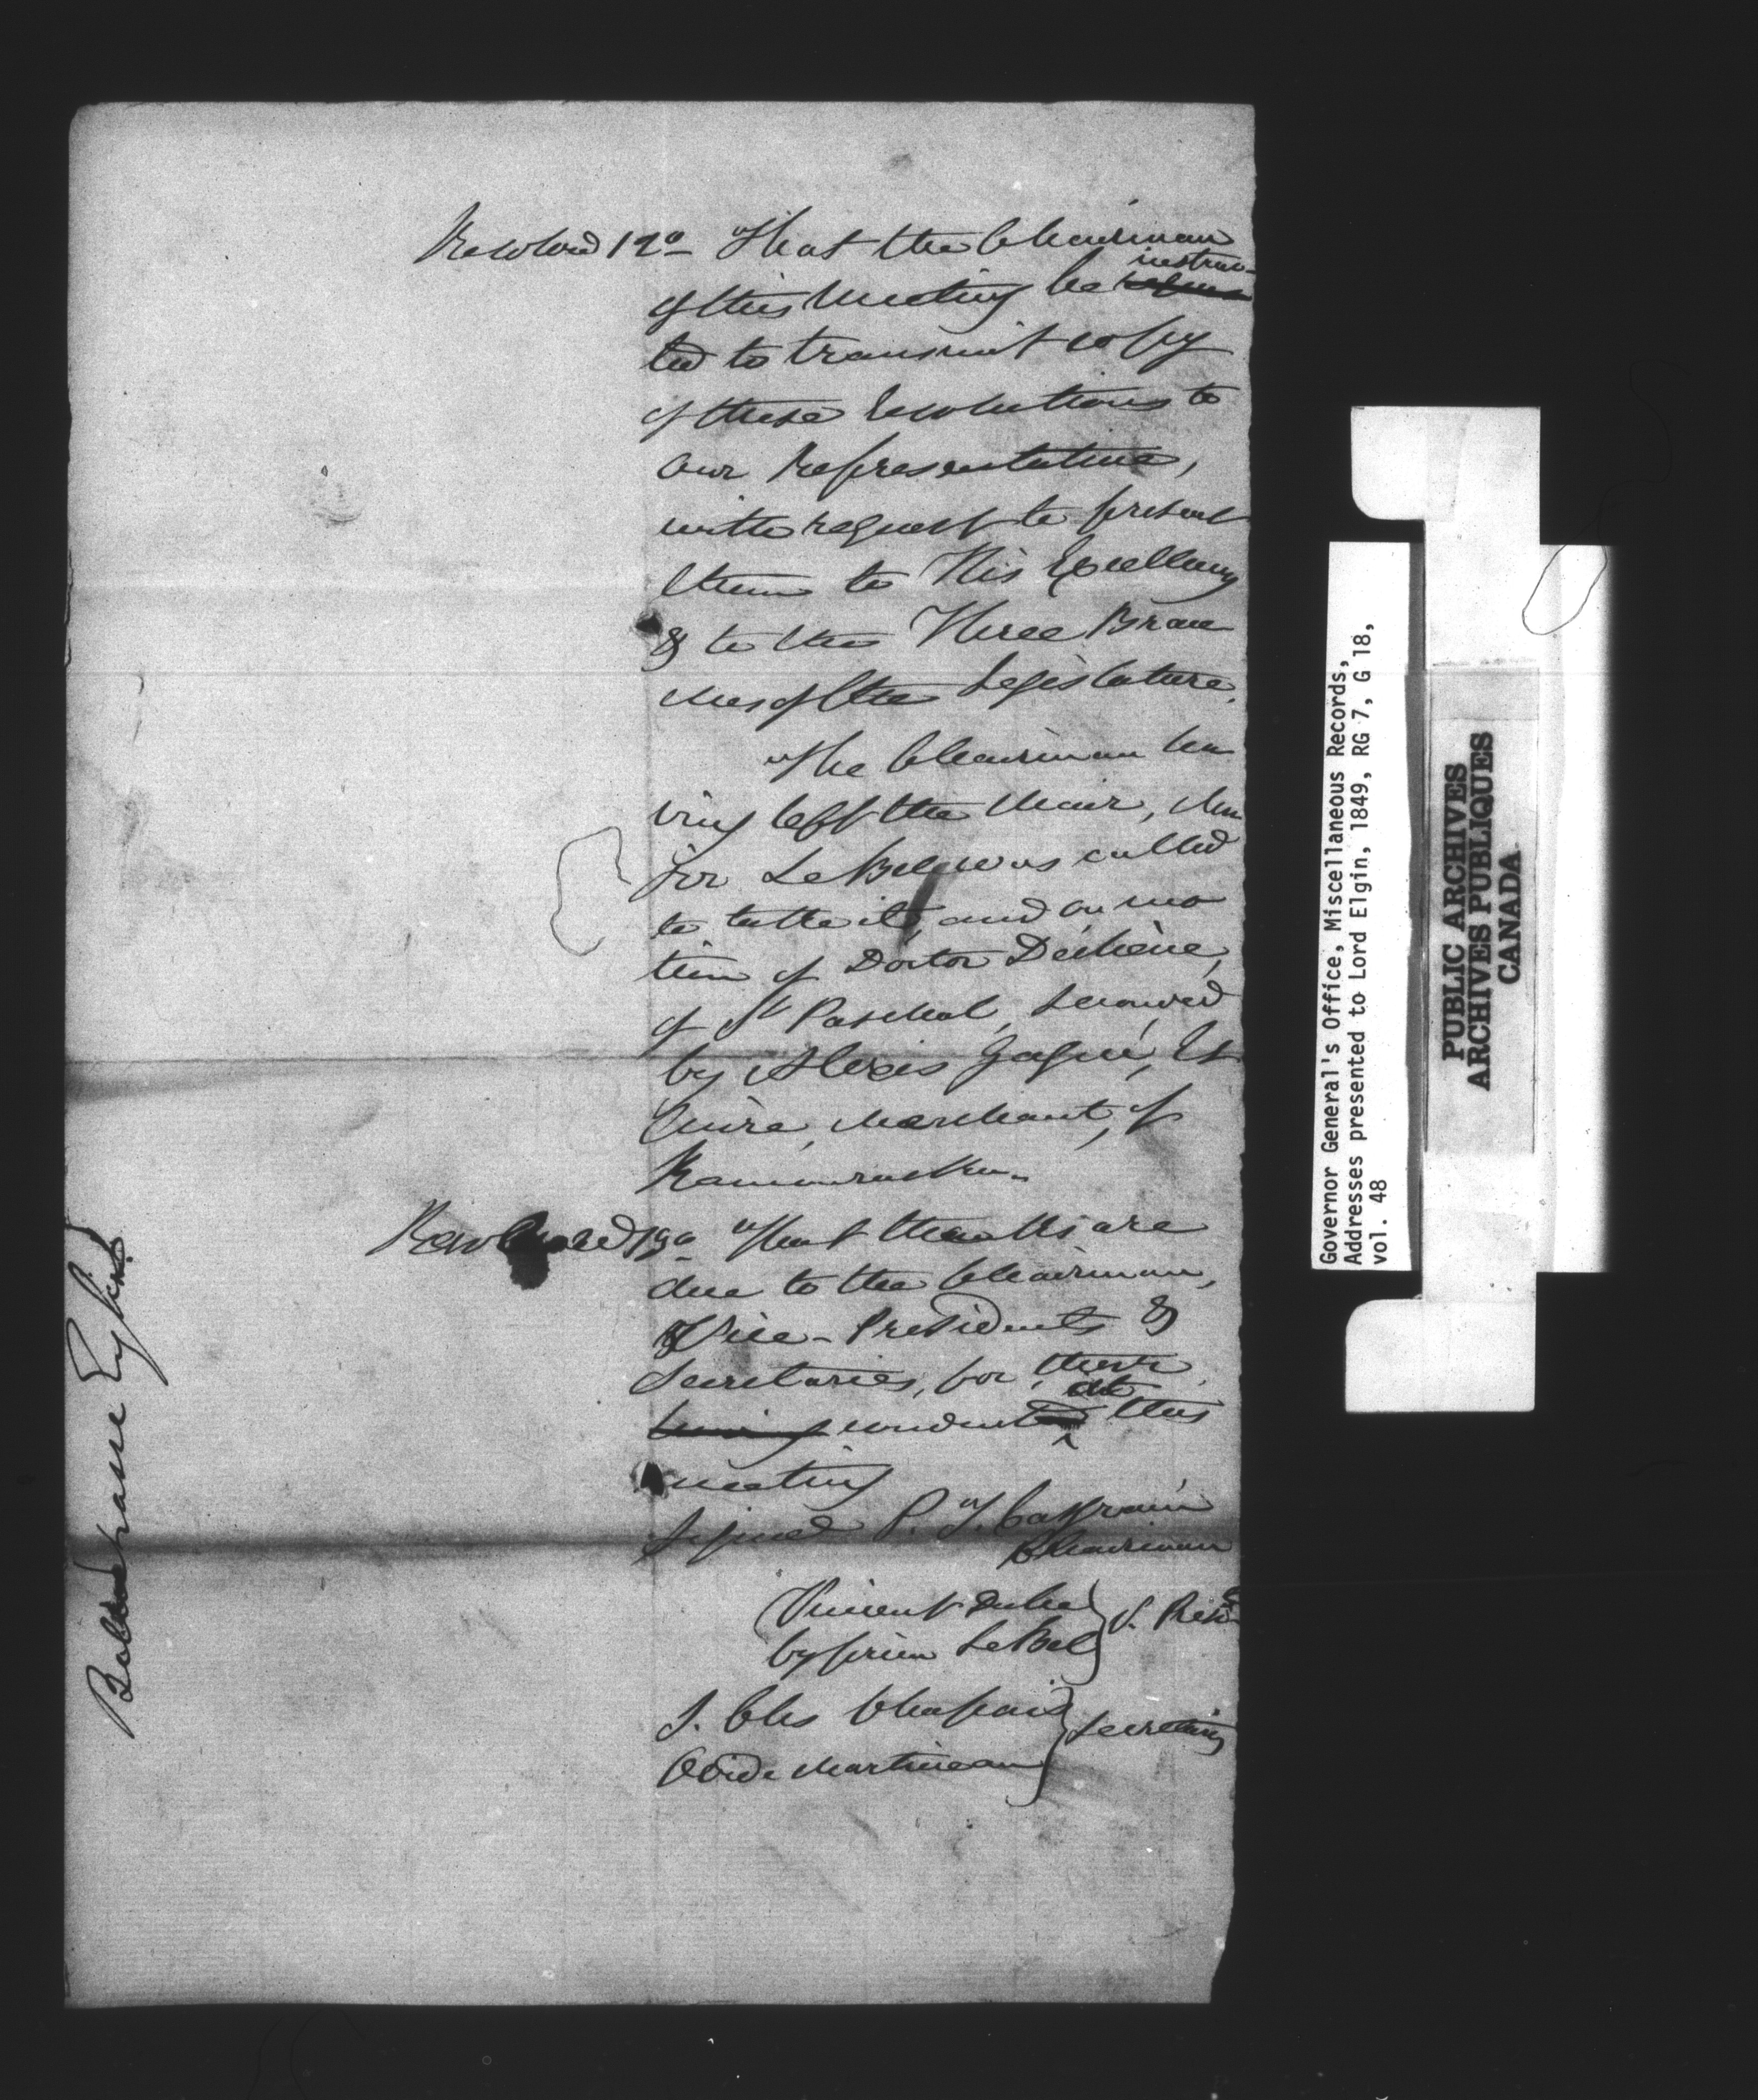 Resolved 12o That the Chairman
of this Meeting be reques instruc-
ted to transmit copy
of these Resolutions to
our Representative,
with request to present
them to His Excellency
& to the Three Bran
ches of the Legislature.
The Chairman ha
ving left the Chair, Ma
jor LeBel was called
to take it, and on mo
tion of Doctor Dechêne,
of St Paschal, Seconded
by Alexis Gagné, Es
quire, Merchant, of
Kamouraska.
Resolved 13o That thanks are
due to the Chairman,
Vice-Presidents &
Secretaries, for their
conduct at this
meeting
Signed P. T. Casgrain
Chairman
Vincent Dubé
Cyprien LeBel } V. Presid
J. Chs Chapais
Ovide Martineau } Secretary
Governor General's Office, Miscellaneous Records,
Addresses presented to Lord Elgin, 1849, RG 7, G 18,
vol. 48
PUBLIC ARCHIVES
ARCHIVES PUBLIQUES
CANADA